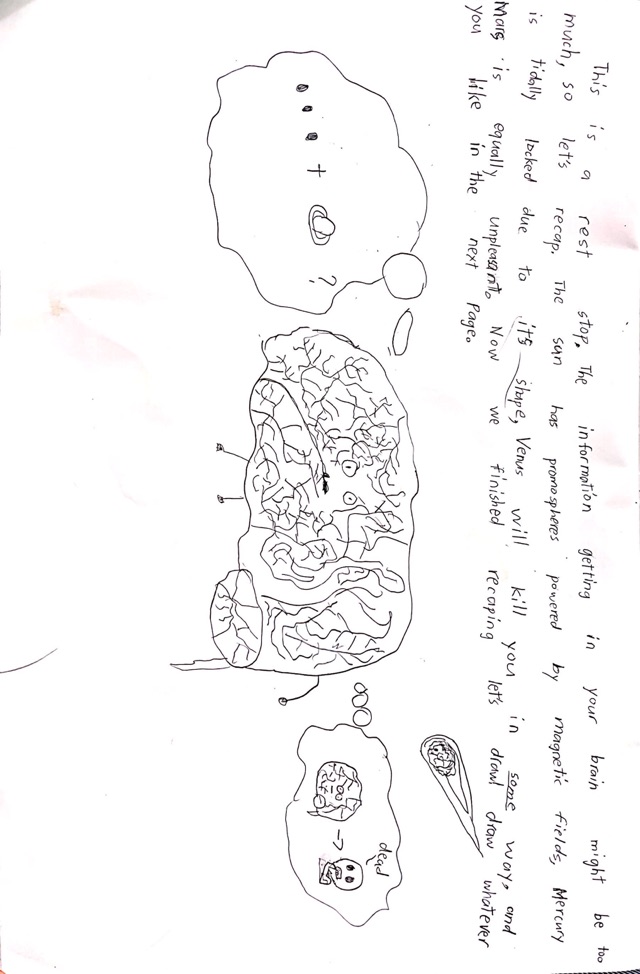 This is a rest stop. The information getting in your brain might be too
much, so let's recap. The sun has promospheres powered by magnetic fields, Mercury
is tidally locked due to it's shape, Venus will kill you in some way, and
Mars is equally unpleasant. Now we finished recaping let's drawl draw whatever
you like in the next page.
+ ?
dead